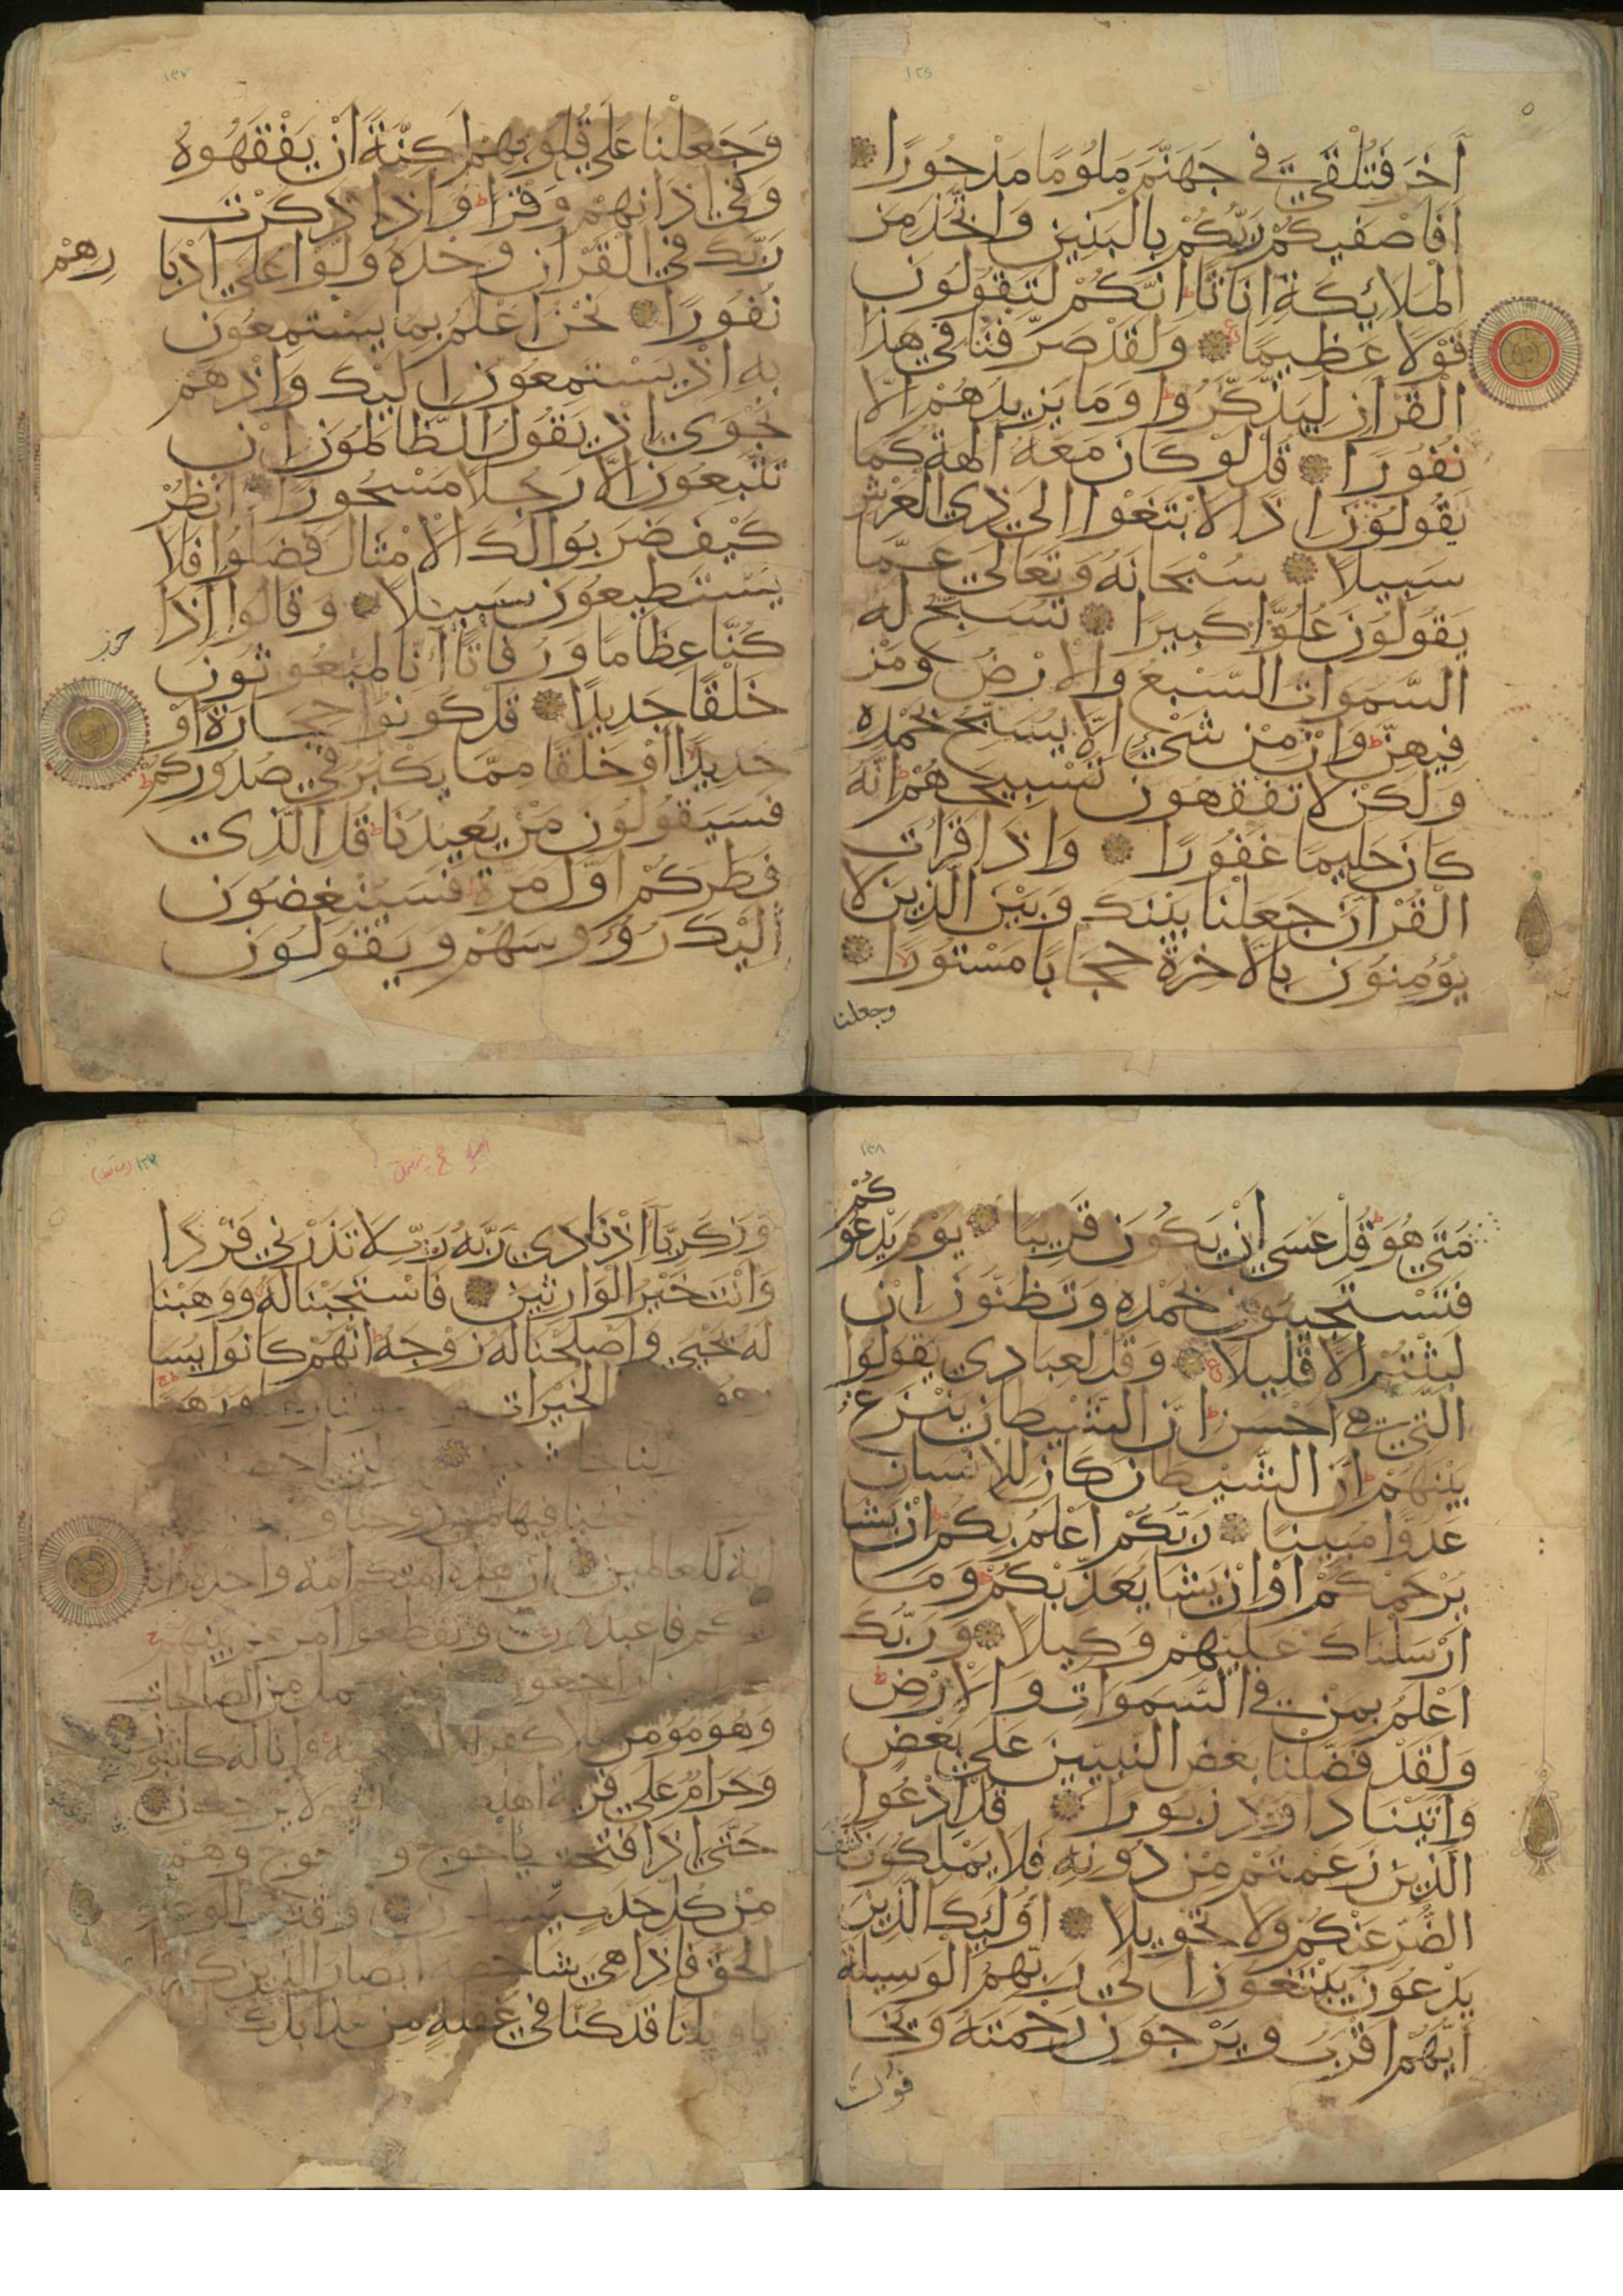 ١٣٦
آخَرَ فَتُلْقَى فِي جَهَنَّمَ مَلُومًا مَدْحُورًا
اَفَاَصْفَيكُمْ رَبُّكُمْ بِالْبَنِينَ وَاتَّخَذَ مِنَ
الْمَلَائِكَةِ اِنَاثًا ط اِنَّكُمْ لَتَقُولُونَ
قَوْلًا عَظِيمًا وَلَقَدْ صَرَّفْنَا فِي هَذَا
الْقُرْآنِ لِيَذَّكَّرُوا ط وَمَا يَزِيدُهُمْ اِلَّا
نُفُورًا قُلْ لَوْ كَانَ مَعَهُ آلِهَةٌ كَمَا
يَقُولُونَ اِذًا لَابْتَغَوْا اِلَى ذِي الْعَرْشِ
سَبِيلًا سُبْحَانَهُ وَتَعَالَى عَمَّا
يَقُولُونَ عُلُوًّا كَبِيرًا تُسَبِّحُ لَهُ
السَّمَوَاتُ السَّبْعُ وَالْاَرْضُ وَمَنْ
فِيهِنَّ ط وَاِنْ مِنْ شَيْءٍ اِلَّا يُسَبِّحُ بِحَمْدِهِ
وَلَكِنْ لَا تَفْقَهُونَ تَسْبِيحَهُمْ ط اِنَّهُ
كَانَ حَلِيمًا غَفُورًا وَاِذَا قَرَاْتَ
الْقُرْآنَ جَعَلْنَا بَيْنَكَ وَبَيْنَ الَّذِينَ لَا
يُؤْمِنُونَ بِالْآخِرَةِ حِجَابًا مَسْتُورًا
وجعلنا
١٣٧
وَجَعَلْنَا عَلَى قُلُوبِهِمْ اَكِنَّةً اَنْ يَفْقَهُوهُ
وَفِي آذَانِهِمْ وَقْرًا ط وَاِذَا ذَكَرْتَ
رَبَّكَ فِي الْقُرْآنِ وَحْدَهُ وَلَّوْا عَلَى اَدْبَا
رِهِمْ
نُفُورًا نَحْنُ اَعْلَمُ بِمَا يَسْتَمِعُونَ
بِهِ اِذْ يَسْتَمِعُونَ اِلَيْكَ وَاِذْ هُمْ
نَجْوَى اِذْ يَقُولُ الظَّالِمُونَ اِنْ
تَتَّبِعُونَ اِلَّا رَجُلًا مَسْحُورًا اُنْظُرْ
كَيْفَ ضَرَبُوا لَكَ الْاَمْثَالَ فَضَلُّوا فَلَا
يَسْتَطِيعُونَ سَبِيلًا وَقَالُوا اَئِذَا
كُنَّا عِظَامًا وَرُفَاتًا اَئِنَّا لَمَبْعُوثُونَ
خَلْقًا جَدِيدًا قُلْ كُونُوا حِجَارَةً اَوْ
حَدِيدًا اَوْ خَلْقًا مِمَّا يَكْبُرُ فِي صُدُورِكُمْ ط
فَسَيَقُولُونَ مَنْ يُعِيدُنَا ط قُلِ الَّذِي
فَطَرَكُمْ اَوَّلَ مَرَّةٍ فَسَيُنْغِضُونَ
اِلَيْكَ رُؤُوسَهُمْ وَيَقُولُونَ
١٣٨
مَتَى هُوَ ط قُلْ عَسَى اَنْ يَكُونَ قَرِيبًا يَوْمَ يَدْعُو
كُمْ
فَتَسْتَجِيبُونَ بِحَمْدِهِ وَتَظُنُّونَ اِنْ
لَبِثْتُمْ اِلَّا قَلِيلًا وَقُلْ لِعِبَادِي يَقُولُوا
الَّتِي هِيَ اَحْسَنُ ط اِنَّ الشَّيْطَانَ يَنْزَغُ
بَيْنَهُمْ ط اِنَّ الشَّيْطَانَ كَانَ لِلْاِنْسَانِ
عَدُوًّا مُبِينًا رَبُّكُمْ اَعْلَمُ بِكُمْ ط اِنْ يَشَا
يَرْحَمْكُمْ اَوْ اِنْ يَشَا يُعَذِّبْكُمْ ط وَمَا
اَرْسَلْنَاكَ عَلَيْهِمْ وَكِيلًا وَرَبُّكَ
اَعْلَمُ بِمَنْ فِي السَّمَوَاتِ وَالْاَرْضِ ط
وَلَقَدْ فَضَّلْنَا بَعْضَ النَّبِيِّينَ عَلَى بَعْضٍ
وَآتَيْنَا دَاوُودَ زَبُورًا قُلِ ادْعُوا
الَّذِينَ زَعَمْتُمْ مِنْ دُونِهِ فَلَا يَمْلِكُونَ كَشْفَ
الضُّرِّ عَنْكُمْ وَلَا تَحْوِيلًا اُولَئِكَ الَّذِينَ
يَدْعُونَ يَبْتَغُونَ اِلَى رَبِّهِمُ الْوَسِيلَةَ
اَيُّهُمْ اَقْرَبُ وَيَرْجُونَ رَحْمَتَهُ وَيَخَا
فُونَ
وَزَكَرِيَّا اِذْ نَادَى رَبَّهُ رَبِّ لَا تَذَرْنِي فَرْدًا
وَاَنْتَ خَيْرُ الْوَارِثِينَ فَاسْتَجَبْنَا لَهُ وَوَهَبْنَا
لَهُ يَحْيَى وَاَصْلَحْنَا لَهُ زَوْجَهُ ط اِنَّهُمْ كَانُوا يُسَا
الْخَيْرَاتِ وَرَهَبًا
لنا خاشعين والتي احصنت
فنفخنا فيها من روحنا و
آية للعالمين ان هذه امتكم امة واحدة وانا
ربكم فاعبدون وتقطعوا امرهم بينهم
راجعون يعمل من الصالحات
وَهُوَ مُؤْمِنٌ كفران وانا له كاتبون
وَحَرَامٌ عَلَى قَرْيَةٍ اهلكناها انهم لا يرجعون
حَتَّى اِذَا فُتِحَتْ يأجوج و وهم
مِنْ كُلِّ حَدَبٍ ينسلون واقترب الوعد
الْحَقُّ فَاِذَا هِيَ شَاخِصَةٌ ابصار الذين كفروا
يا ويلنا قَدْ كُنَّا فِي غَفْلَةٍ مِنْ هذا بل ك